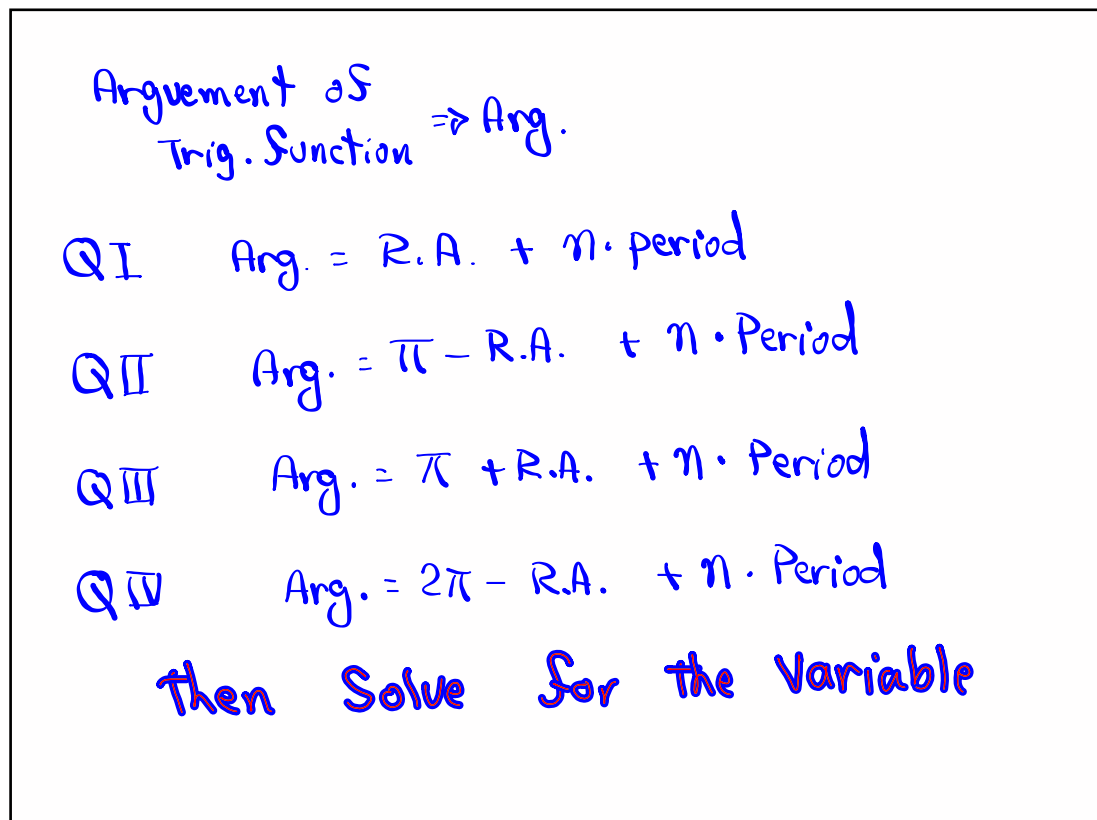 Arguement of
Trig. function ⇒ Arg.
QI Arg. = R.A. + n. period
QII Arg. = π - R.A. + n • Period
QIII Arg. = π + R.A. + n • Period
QIV Arg. = 2π - R.A. + n • Period
Then Solve for the Variable